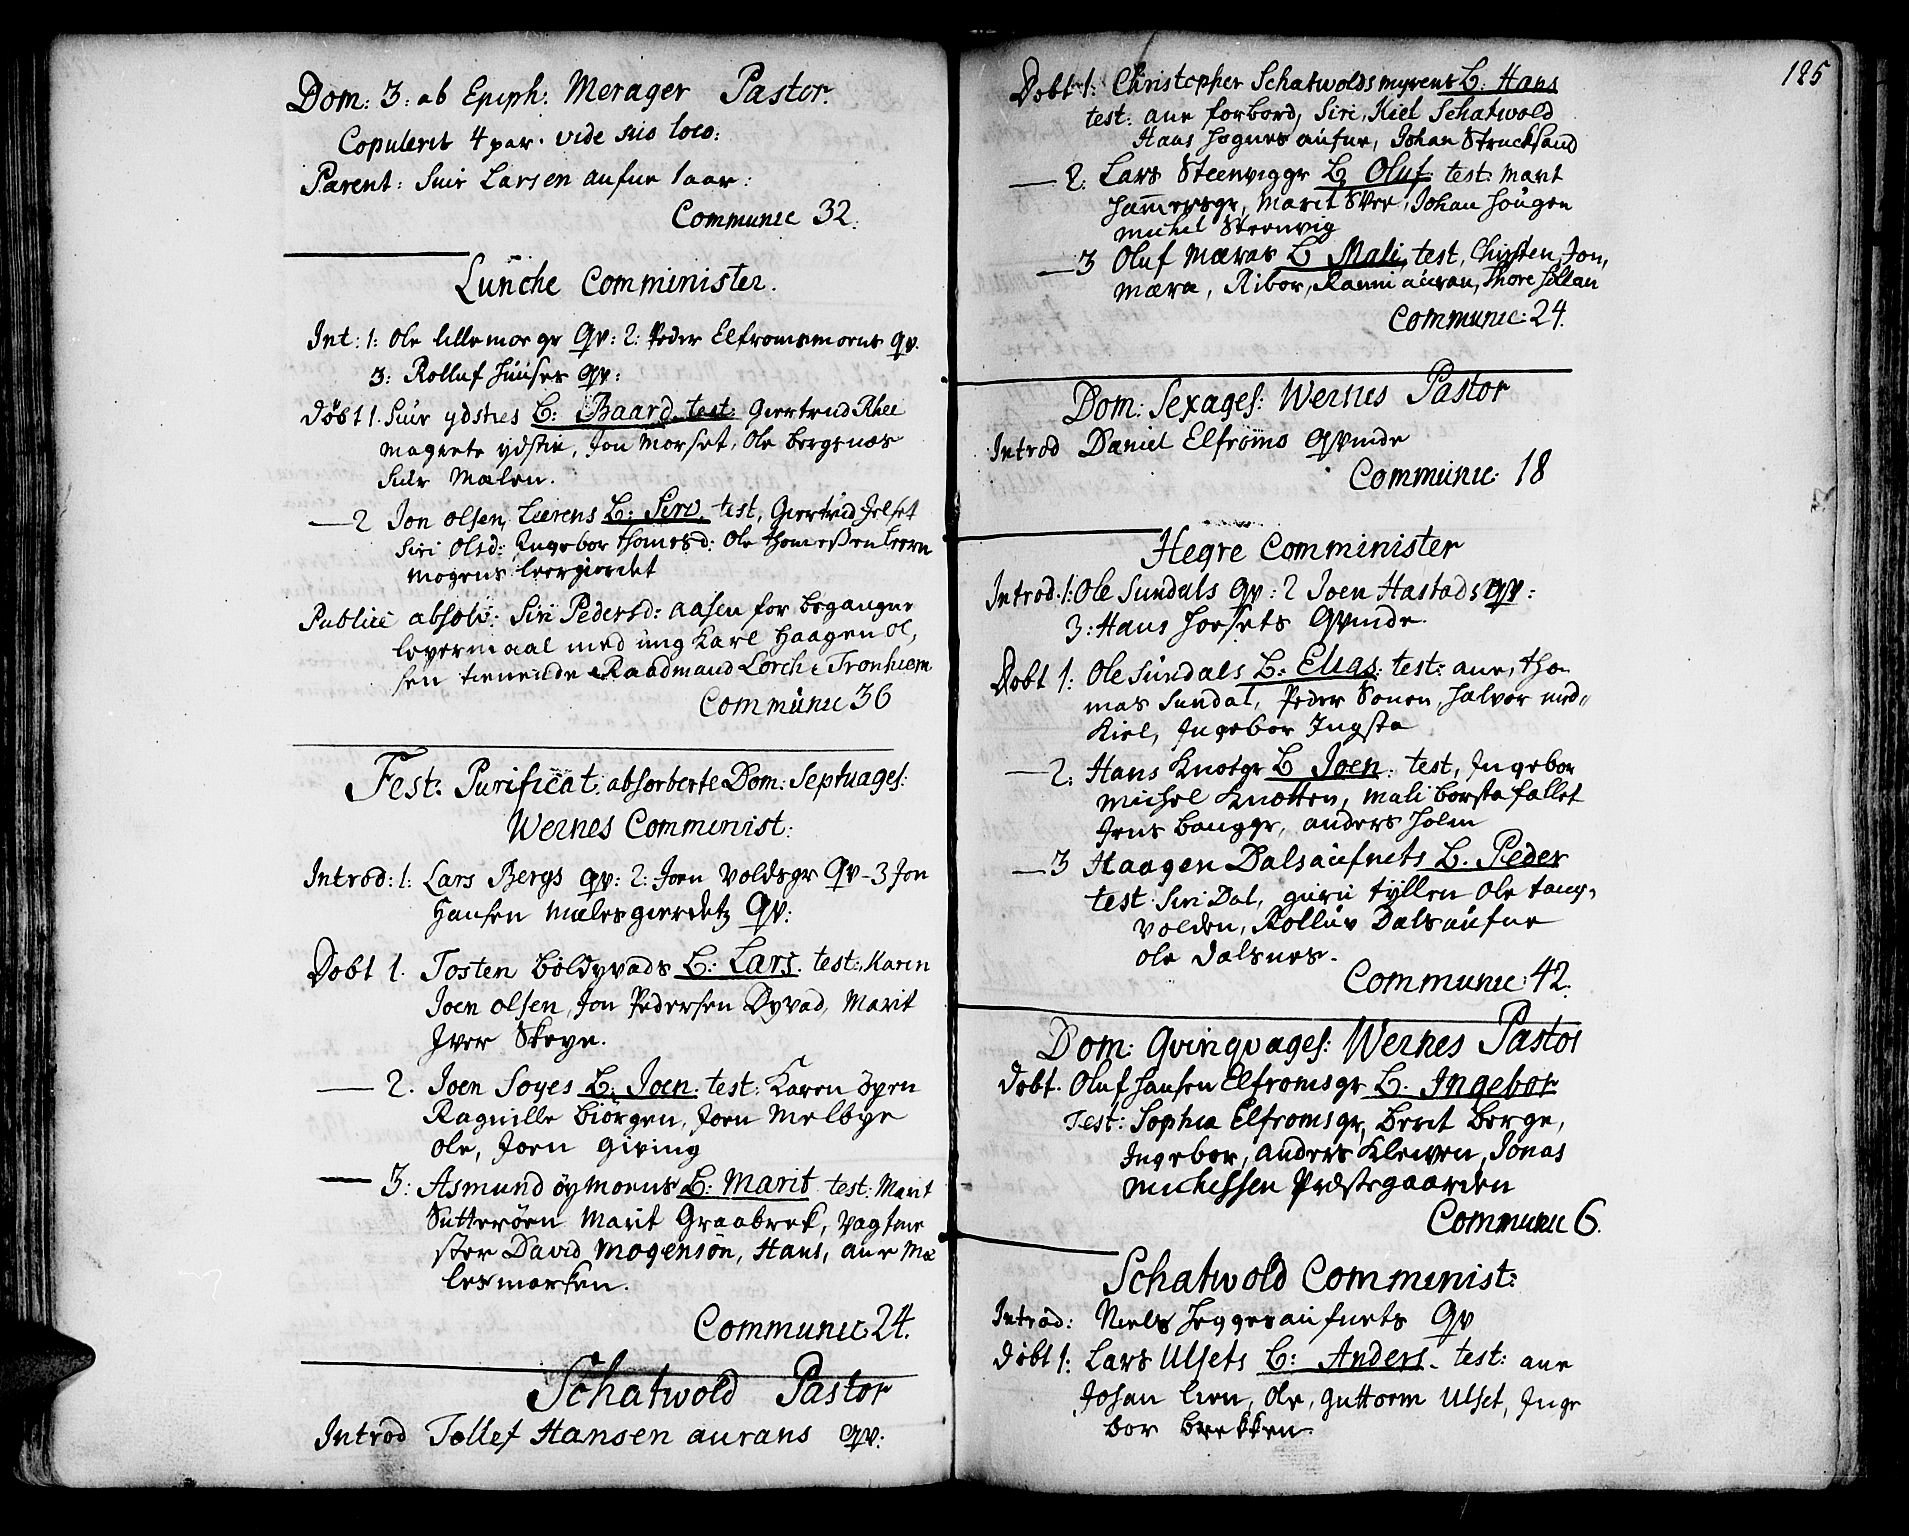 Dom: 3: ab Epiph: Merager Pastor.
Copulerit 4 par. vide suo loco:
Parent: Siur Larsen aufne 1 aar:
Communic 32.
Lunche Comminister.
Int: 1: Ole lillemorgr Qv: 2: Peder Elfromsmoens qv.
3: Rolluf Huuses Qv:
Døbt 1. Siur ydsties B: Baard test: Giertrud Rhee
Magnete ydstie, Jon Morset, Ole bergsnæs
Siur Mælen.
—2 Jon olsen Leerens B: Siri, test, Giertrud Jelset
Siri Olsd: Ingebor thomesd: Ole thomessen leern
Mogens leergierdet
Publice absolv: Siri Pedersd: Aasen for begangne
levermaal med ung Karl Haagen ol,
sen tienende Raadmand Lorch i Tronhiem
Communic 36
Fest: Purificat: absorberte Dom: Septuages:
Wernes Comminist:
Introd: 1: Lars Bergs qv: 2: Joen Voldsgr Qv - 3 Jon
Hansen Mælesgierdetz Qv:
Døbt 1. Tosten böldyvads B: Lars. test: Karen
Joen olsen, Jon Pedersen Dyvad, Marit
Iver Skeye.
— 2. Joen Soyes B: Joen. test: Karen öyen
Ragnille biörgen, Joen Melbye
Ole, Joen Giving
— 3: Asmund öymoens B: Marit test: Marit
Sutterøen Marit Graabrek, Vagtme
ster David Mogensøn, Hans, ane Mæ
lesmarken.
Communic: 24.
Schatwold Pastor
Introd Tollef Hansen aurans qv:
185
Døbt 1: Christopher Schatwoldsmyrens B: Hans
test: ane forbord, Siri, Kiel Schatwold
Hans hognes aufne, Johan Strucksand
— 2. Lars Steenviggr B Oluf test: Marit
hammersgr, Marit Skee, Johan hougen
Michel Steenvig
— 3 Oluf Mæras B Mali, test, Chirsten, Jon,
Mæra, Ribor, Ranni auran, Thore hellan
Communic: 24.
Dom: Sexages: Wernes Pastor
Introd Daniel Elfroms qvinde
Communic: 18
Hegre Comminister
Introd: 1: Ole Sundals qv: 2 Joen Hastads qv:
3: Hans horsets Qvinde.
Døbt 1: Ole Sundals B: Elias: test: ane, tho
mas Sundal, Peder Sonen, halvor med
Kiel, Ingebor Ingsta
— 2: Hans Knotgr B Joen: test, Ingebor
Michel Knotten, Mali borstafallet
Jens banggr, anders holm
— 3 Haagen Dalsaufnets B. Peder
test Siri Dal, guru tyllen Ole tang,
volden, Rolluv Dalsaufne
ole dalsnes.
Communic: 42.
Dom: Qvinqvages: Wernes Pastor
Døbt. Oluf hansen Elfromsgr B. Ingebor
Test: Sophia Elfromsgr, Berit Berge,
Ingebor, anders Kleiven, Jonas
Michelssen Præstegaarden
Communic 6.
Schatwold Comminist:
Introd: Niels heggesaufnets Qv
Døbt 1: Lars Ulsets B: Anders. test: ane
Johan lien, Ole, guttorm Ulset, Inge
bor brekken